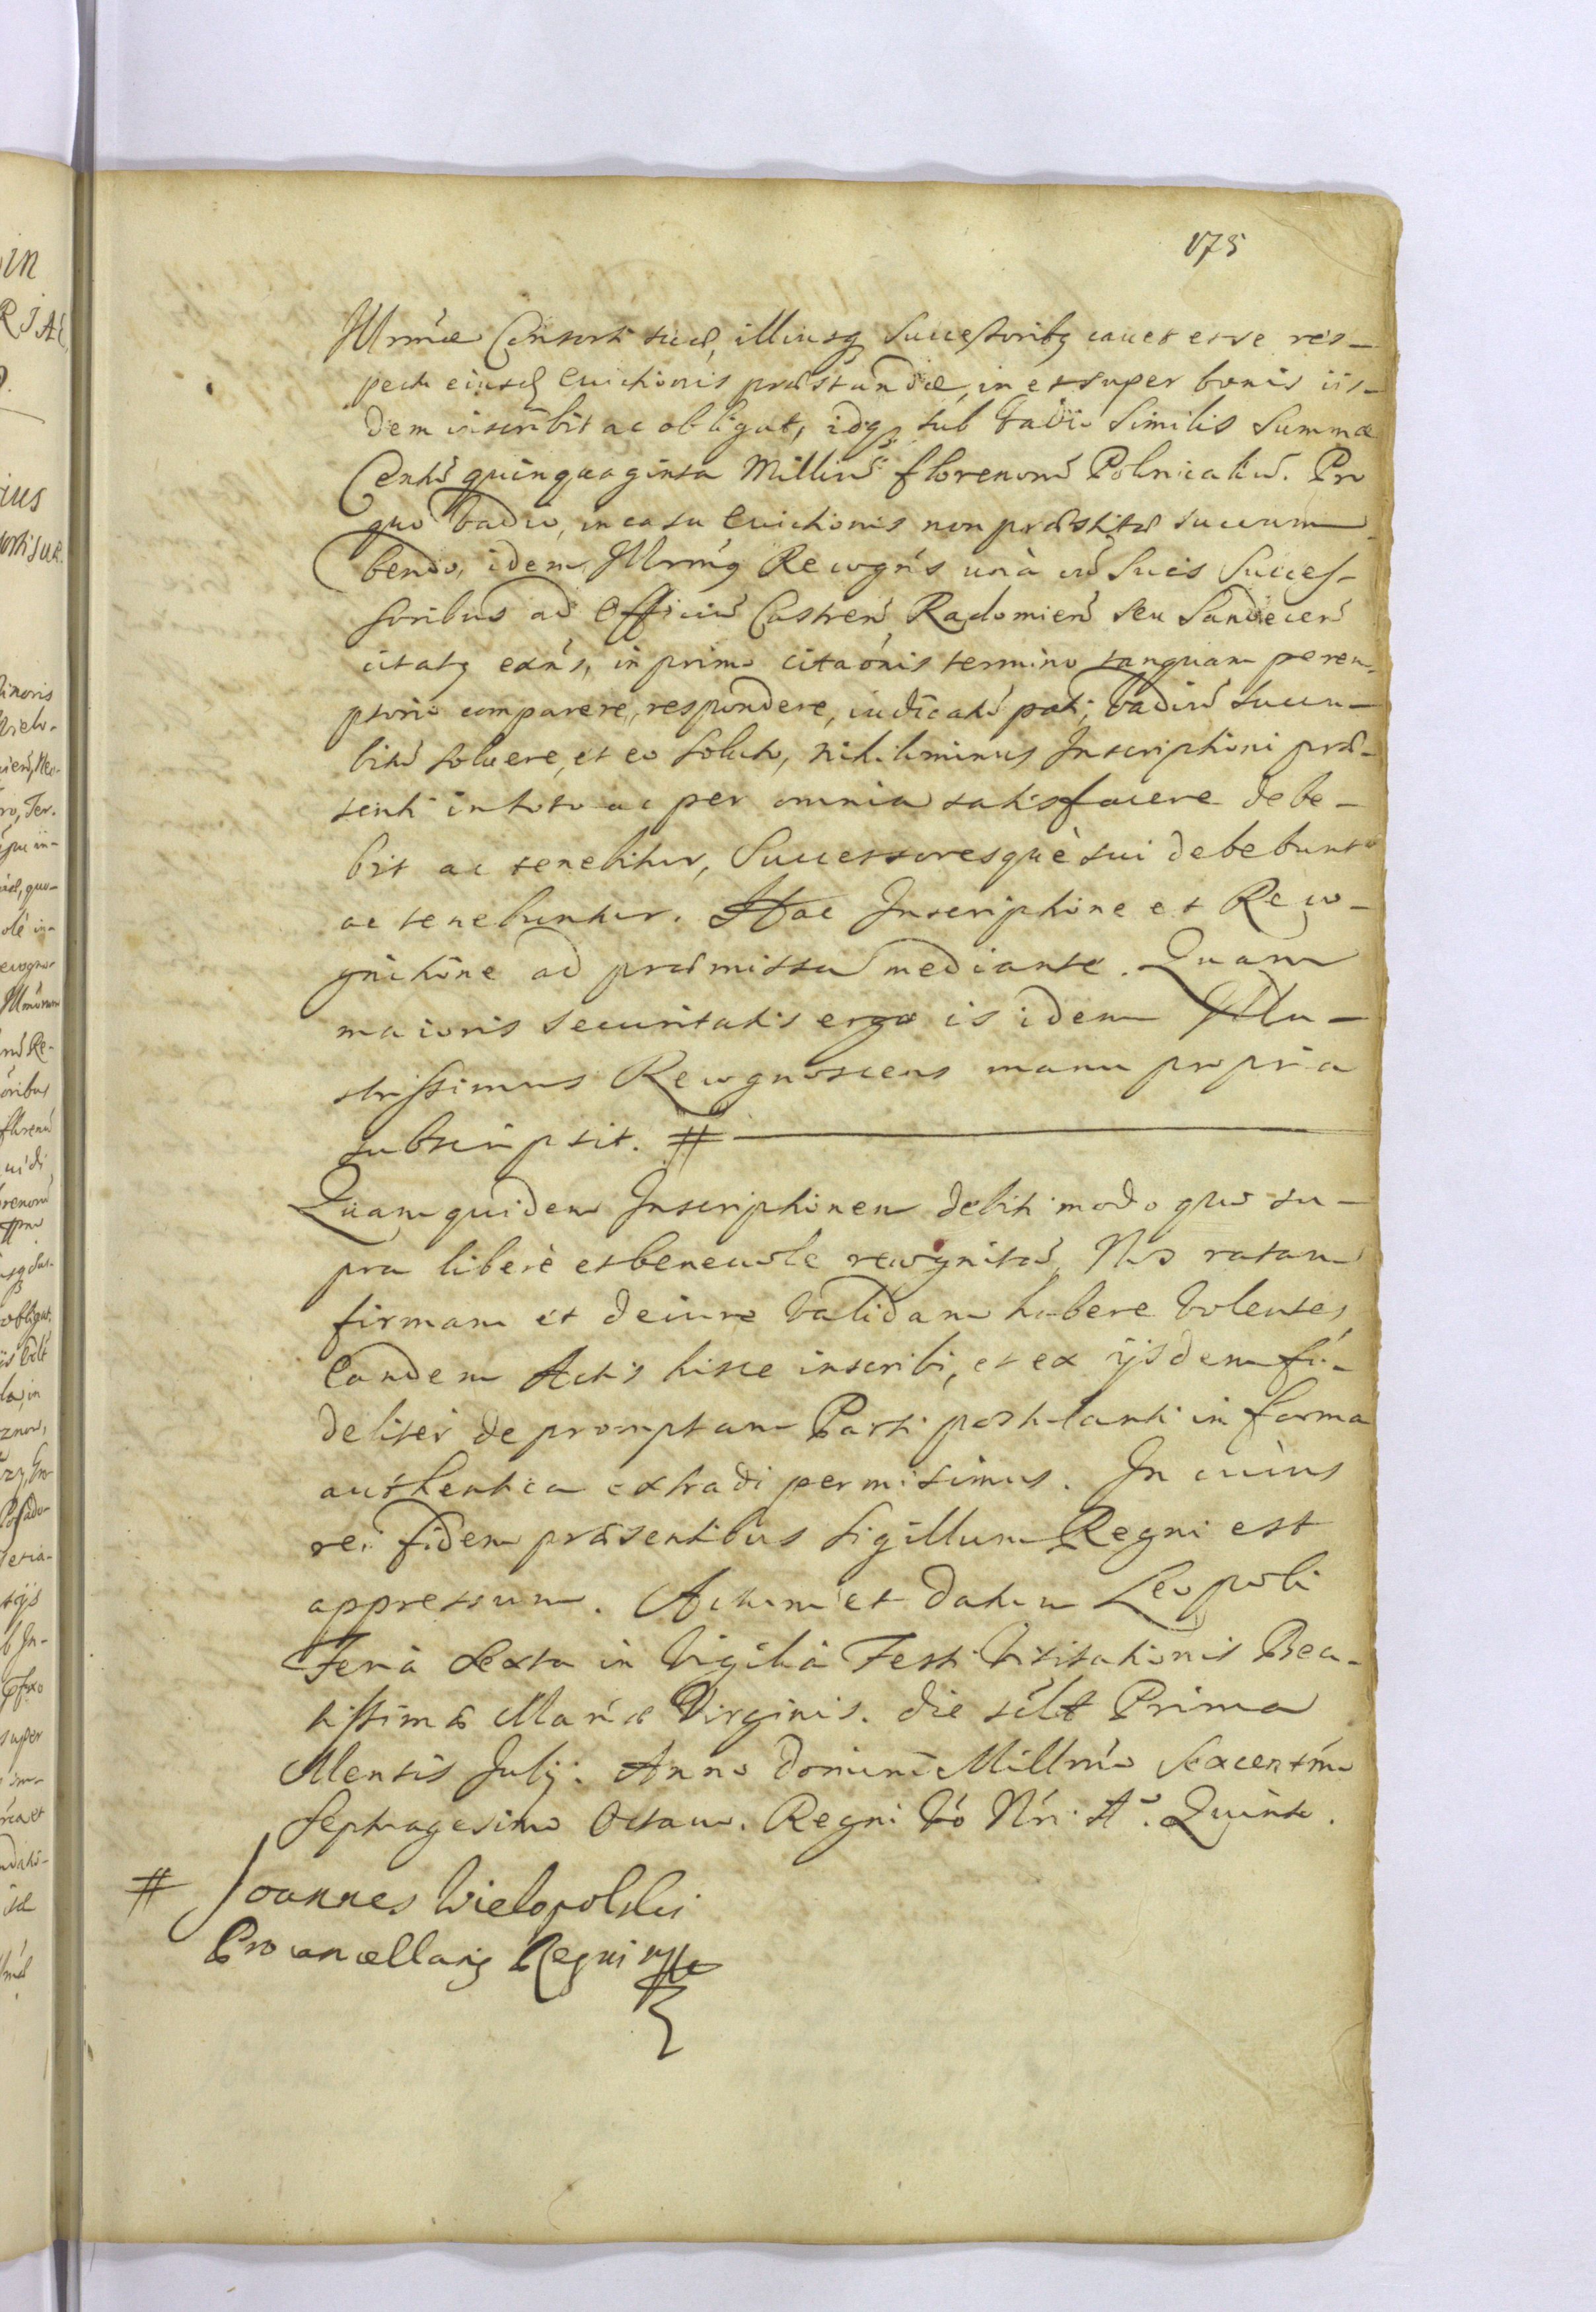 175
Illrmæ Consorti suæ, illiusq Successoribq cauet et se res-
pectu eiusd euictionis præstandæ, in et super bonis iis-
dem inscribit ac obligat, idq sub Vadio Similis Summæ
Centu quinquaginta Milliu florenoru Polnicaliu. Pro
quo Vadio, in casu euictionis non præstitæ succum-
bendo, idem Illrmq Recogns unà cu Suis Succes-
soribus ad Officiu Castren Radomien seu Sandecen
citatq exns, in primo citaonis termino tanquam perem-
ptorio comparere, respondere, iudicatu pati, Vadiu succu-
bitu soluere, et eo soluto, nihilominus Inscriptioni præ-
senti in toto ac per omnia satisfacere debe-
bit ac tenebitur, Successoresquè sui debebunt
ac tenebuntur. Hac Inscriptione et Reco-
gnitione ad præmissa mediante. Quam
maioris securitatis ergo is idem Illu-
strissimus Recognoscens manu propria
subscripsit. #
Quam quidem Inscriptionem debiti modo quo su-
pra liberè et beneuole recognitã, Nos ratam
firmam et de iure Validam habere Volentes,
Eandem Actis hisce inscribi, et ex ijsdem fi-
deliter depromptam Parti postulanti in forma
authentica extradi permisimus. In cuius
rei fidem præsentibus Sigillum Regni est
appressum. Actum et datum Leopoli
Feria Sexta in Vigilia Festi Visitationis Bea-
tissimæ Mariæ Virginis. die scilt Prima
Mensis Julij. Anno Domini Millmo Sexcentmo
Septuagesimo Octauo. Regni Vo Nri Ao. Quinto.
# Joannes Wielopolski
Procancellariq Regni mp